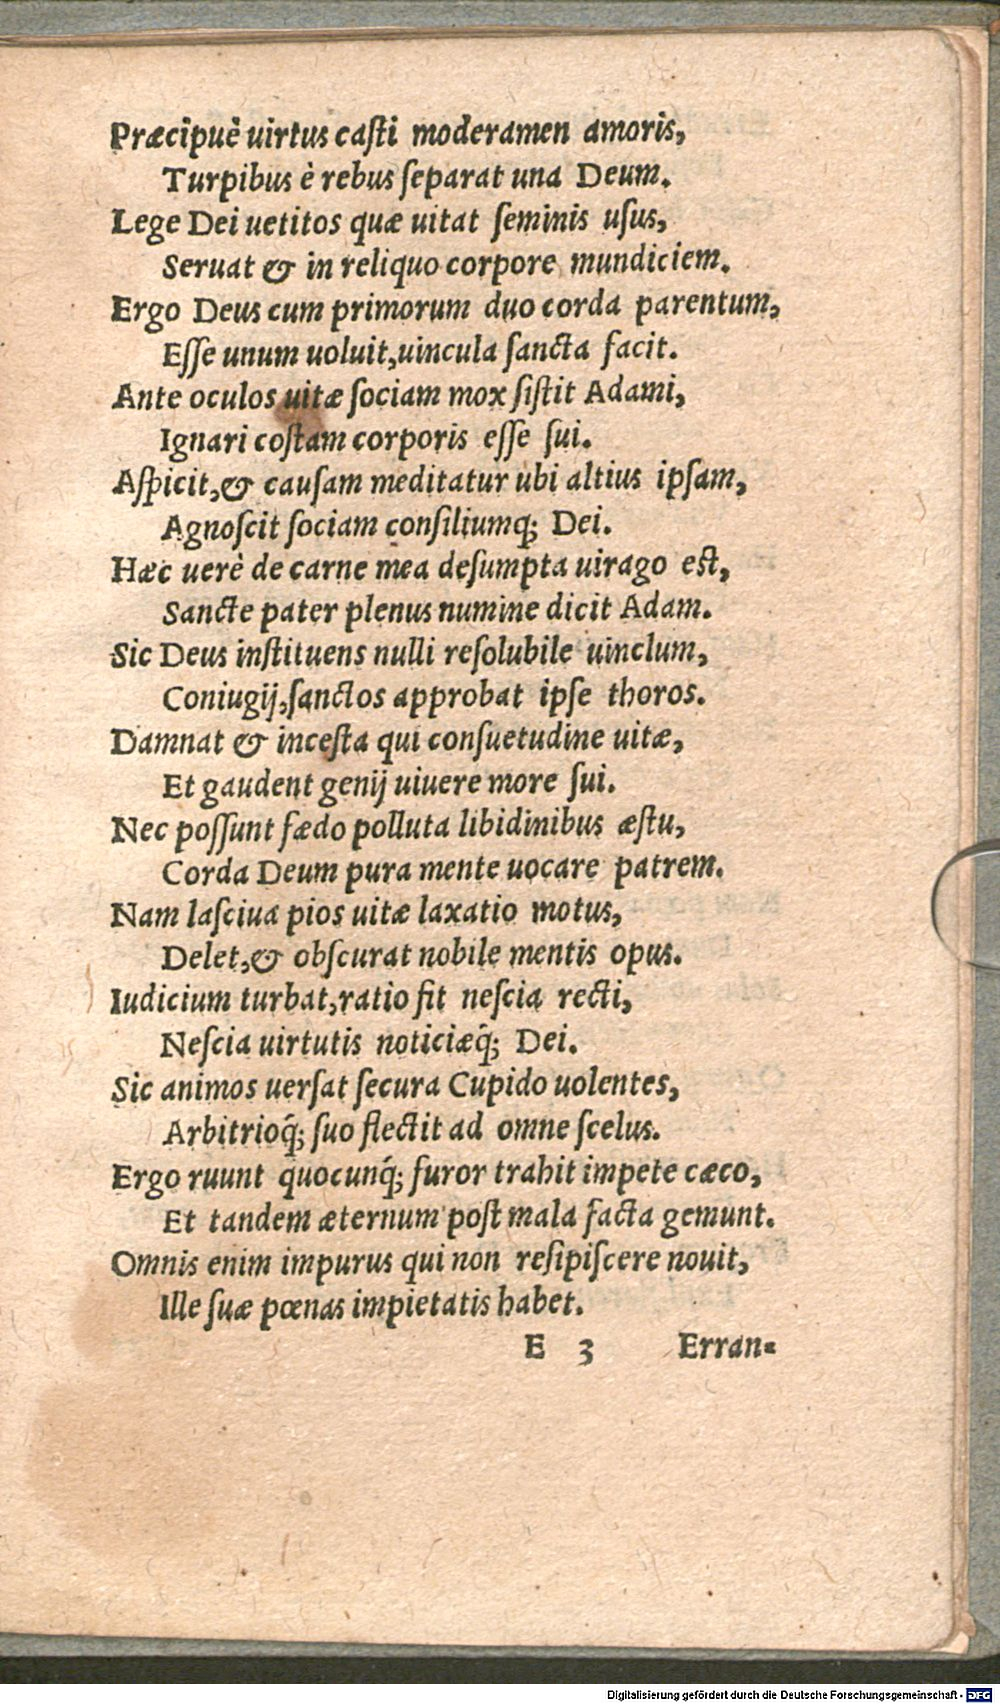 Præcipuè uirtus casti moderamen amoris,
Turpibus è rebus separat una Deum.
Lege Dei uetitos quæ uitat seminis usus,
Seruat & in reliquo corpore mundiciem.
Ergo Deus cum primorum duo corda parentum,
Esse unum uoluit, uincula sancta facit.
Ante oculos uitæ sociam mox sistit Adami,
Ignari costam corporis esse sui.
Aspicit, & causam meditatur ubi altius ipsam,
Agnoscit sociam consiliumq; Dei.
Hæc uerè de carne mea desumpta uirago est,
Sancte pater plenus numine dicit Adam.
Sic Deus instituens nulli resolubile uinclum,
Coniugij, sanctos approbat ipse thoros.
Damnat & incesta qui consuetudine uitæ,
Et gaudent genij uiuere more sui.
Nec possunt fædo polluta libidinibus æstu,
Corda Deum pura mente uocare patrem.
Nam lasciua pios uitæ laxatio motus,
Delet, & obscurat nobile mentis opus.
Iudicium turbat, ratio fit nescia recti,
Nescia uirtutis noticiæq́; Dei.
Sic animos uersat secura Cupido uolentes,
Arbitrioq́; suo flectit ad omne scelus.
Ergo ruunt quocunq́; furor trahit impete cæco,
Et tandem æternum post mala facta gemunt.
Omnis enim impurus qui non resipiscere nouit,
Ille suæ pœnas impietatis habet.
E 3 Erran-
Digitalisierung gefördert durch die Deutsche Forschungsgemeinschaft - DFG